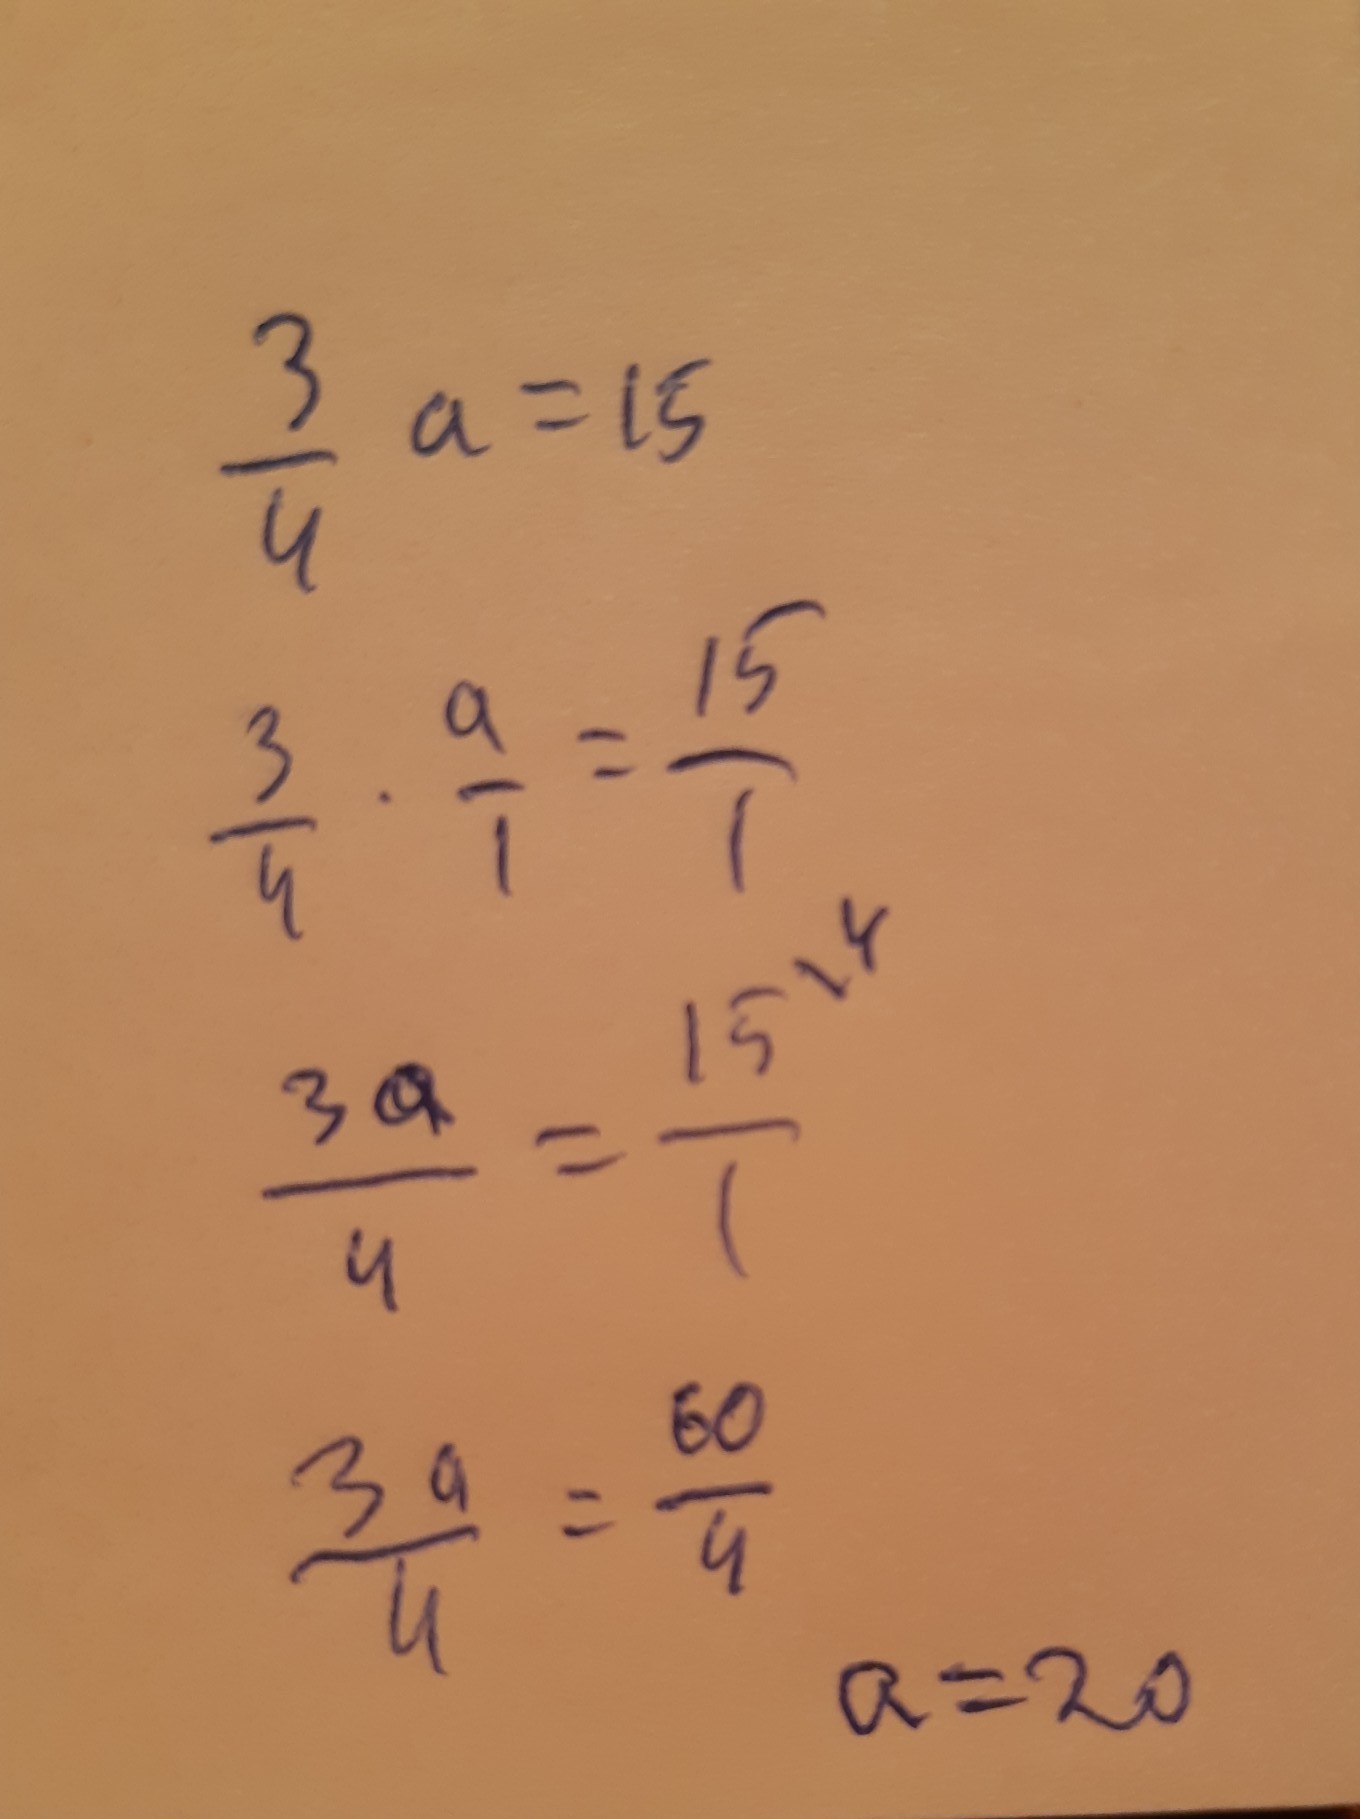 3/4 a = 15
3/4 · a/1 = 15/1
3a/4 = 15/1 \4
3a/4 = 60/4
a = 20